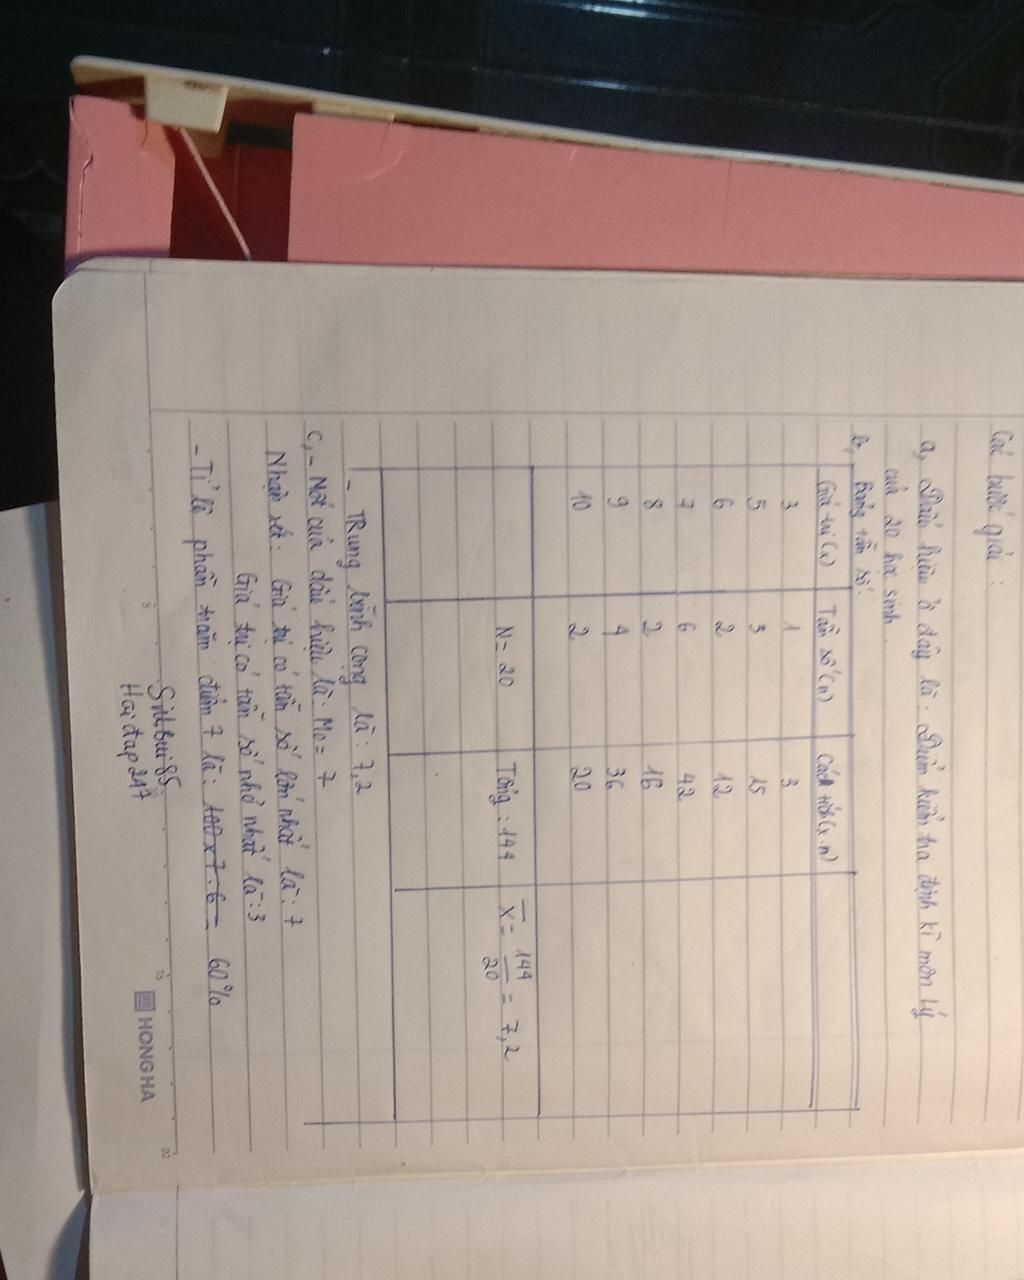 Các bước giải :
a, Dấu hiệu ở đây là : Điểm kiểm tra định kì môn Lý
của 20 học sinh.
b, Bảng tần số:
Giá trị (x) Tần số (n) Cách tính (x.n)
3 1 3
5 3 15
6 2 12
7 6 42
8 2 16
9 4 36
10 2 20
N = 20 Tổng : 144 X = 144/20 = 7,2
- TRung bình cộng là : 7,2
c, - Mốt của dấu hiệu là : Mo = 7
Nhận xét : Giá trị có tần số lớn nhất là : 7
Giá trị có tần số nhỏ nhất là : 3
- Tỉ lệ phần trăm điểm 7 là : 100 x 7 : 6 = 60%
Sithbui85.
Hoidap247
5 15 20
HONG HA